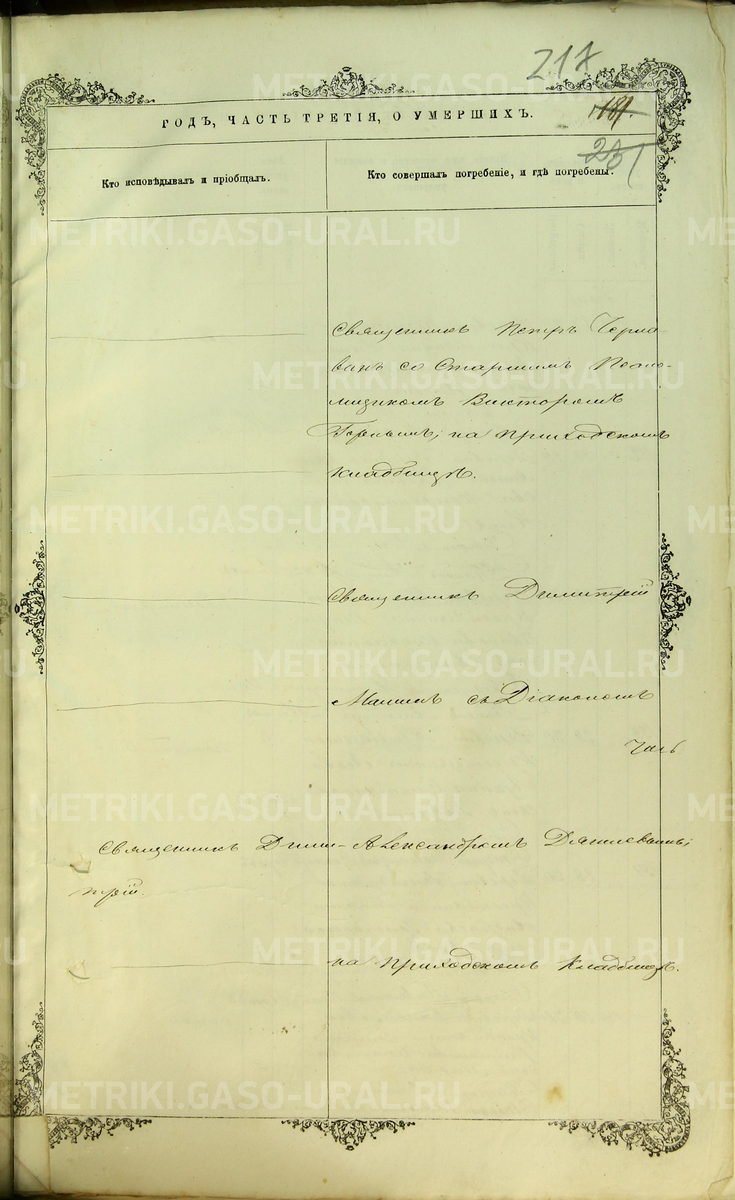 217
181.
231
ГОДЪ, ЧАСТЬ ТРЕТІЯ, О УМЕРШИХЪ.
Кто исповѣдывалъ и пріобщалъ.
Кто совершалъ погребеніе, и гдѣ погребены.
Священникъ Петръ
со Старшимъ Псало-
мщикомъ Викторомъ
на приходскомъ
кладбищѣ.
Священникъ Димитрій
съ Діакономъ
Священникъ Дими-
трій.
Александромъ
на приходскомъ кладбищѣ.
METRIKI.GASO-URAL.RU